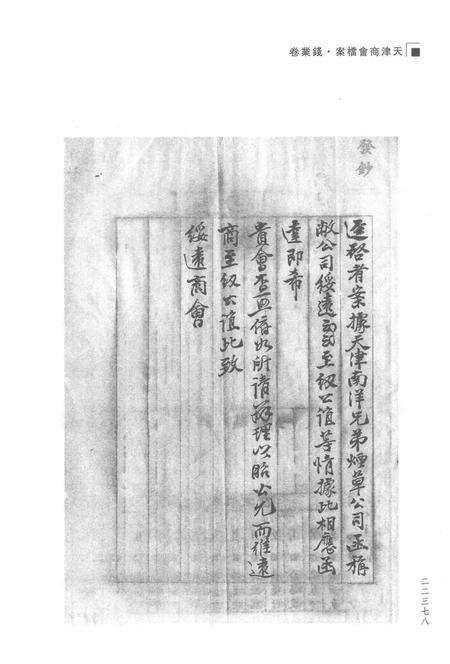 天津商會檔案·錢業卷
發鈔
逕啓者案據天津南洋兄弟煙草公司函稱
敝公司綏遠至紉公誼等情據此相應函
達即希
貴會查照俯如所請辦理以昭公允而維遠
商至紉公誼此致
綏遠商會
二二三七八